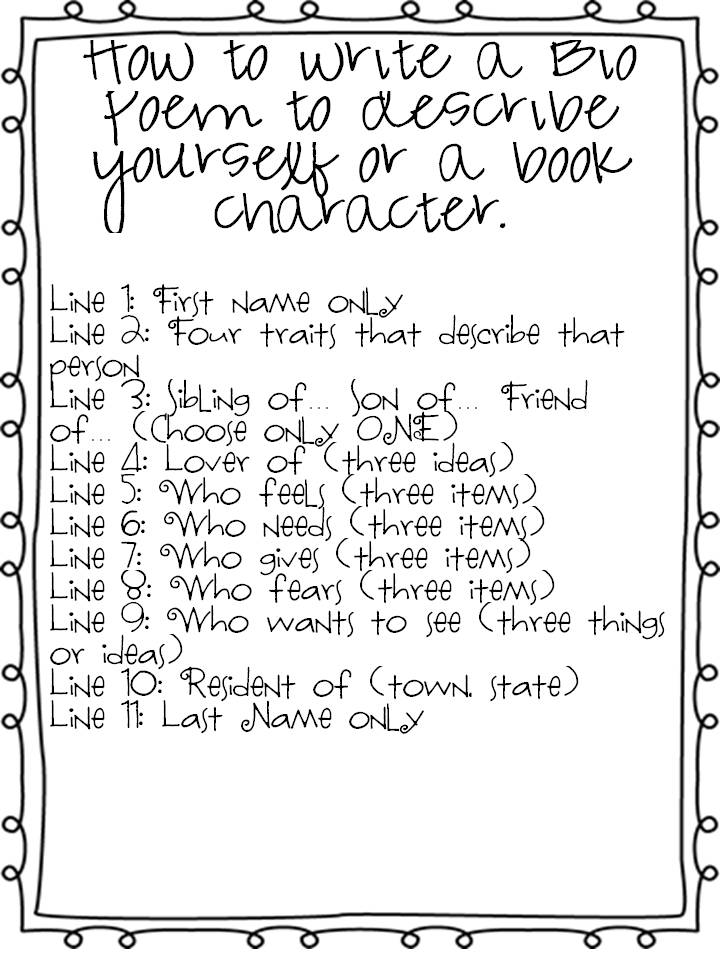 How to write a Bio
Poem to describe
yourself or a book
character.
Line 1: First name only
Line 2: Four traits that describe that
person
Line 3: Sibling of... Son of... Friend
of... (Choose only ONE)
Line 4: Lover of (three ideas)
Line 5: Who feels (three items)
Line 6: Who needs (three items)
Line 7: Who gives (three items)
Line 8: Who fears (three items)
Line 9: Who wants to see (three things
or ideas)
Line 10: Resident of (town, state)
Line 11: Last Name only